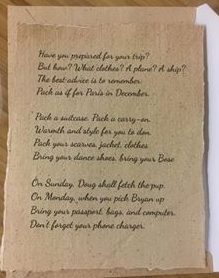 Have you prepared for your trip?
But how? What clothes? A plane? A ship?
The best advice is to remember
Pack as if for Paris in December.
Pack a suitcase. Pack a carry-on.
Warmth and style for you to don.
Pack your scarves, jacket, clothes
Bring your dance shoes, bring your Bose
On Sunday, Doug shall fetch the pup.
On Monday, when you pick Bryan up
Bring your passport, bags, and computer.
Don't forget your phone charger.